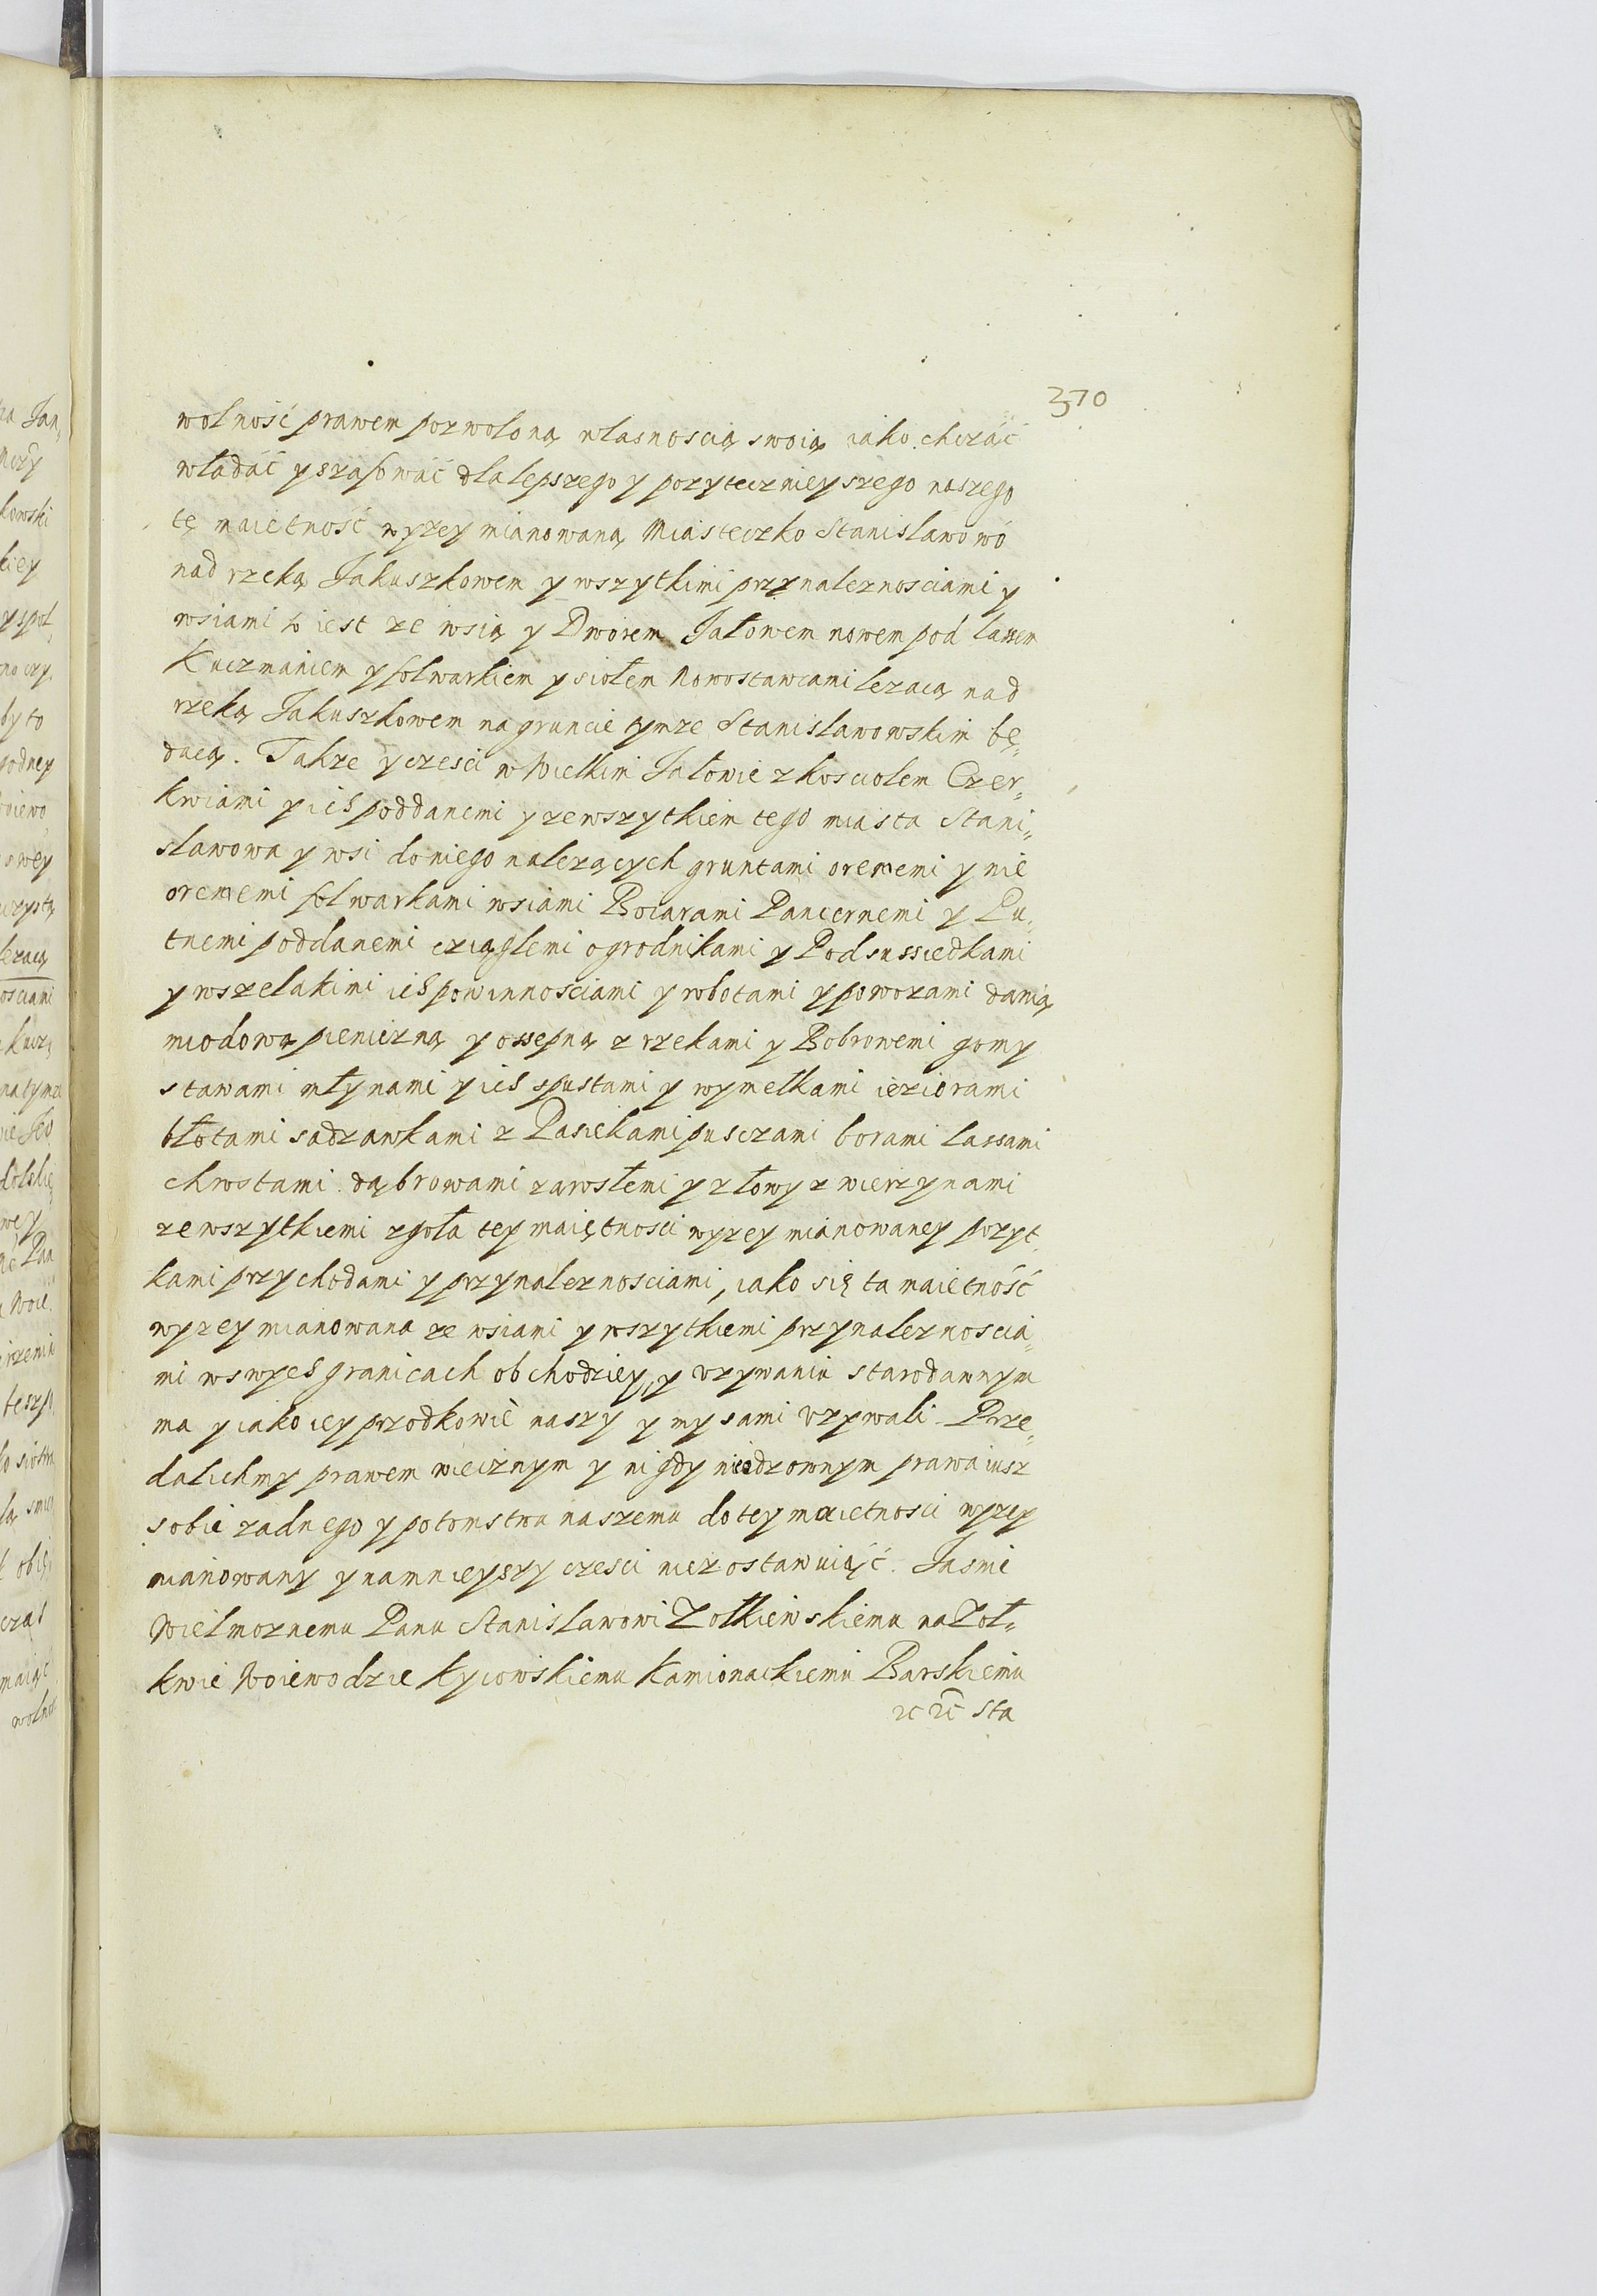 370
wolność prawem pozwoloną własnoscią swoią iako chcząć
władać y szafować dla lepszego y pozytecznieyszego naszego
tę maietność wyzey mianowaną Miasteczko Stanislawowo
nad rzeką Jakuszkowem y wszytkimi przynaleznosciami y
wsiami to iest ze wsią y Dworem Jałowem nowem pod lassem
Kuczmaniem y folwarkiem y siołem Nowostawcami lezacą nad
rzeką Jakuszkowem na gruncie tymze Stanislawowskim bę„
dacą. Takze y czesci w Wielkim Jałowie z kosciolem Czer„
kwiami y ich poddanemi y ze wszytkiem tego miasta Stani„
sławowa y wsi do niego nalezących gruntami oremeni y nie
oremeni folwarkami wsiami Boiarami Pancernemi y Pu„
tnemi poddanemi cziąglemi ogrodnikami y Podsussiedkami
y wszelakimi ich powinnosciami y robotami y powozami danią
miodową pieniezną y ossepną z rzekami y Bobrowemi gomy
stawami młynami y ich spustami y wymełkami ieziorami
błotami sadzawkami z Pasiekami pusczami borami lassami
chrostami dąbrowami zarosłemi y z łowy zwierzynami
ze wszytkiemi zgoła tey maiętnosci wyzey mianowaney pozyt„
kami przychodami y przynaleznosciami, iako się ta maietność
wyzey mianowana ze wsiami y wszytkiemi przynaleznoscia„
mi w swych granicach obchodziey y vzywaniu starodawnym
ma y iako iey przodkowie naszy y my sami vzywali. Prze„
dalichmy prawem wiecznym y nigdy nieodzownym prawa iusz
sobie zadnego y potomstwu naszemu do tey maietnosci wyzey
mianowany y namnieyszy czesci nie zostawuiąć. Jasnie
Wielmoznemu Panu Stanislawowi Zołkiewskiemu na Zoł„
kwie Woiewodzie Kyiowskiemu Kamionackiemu Barskiemu
etc etc Sta